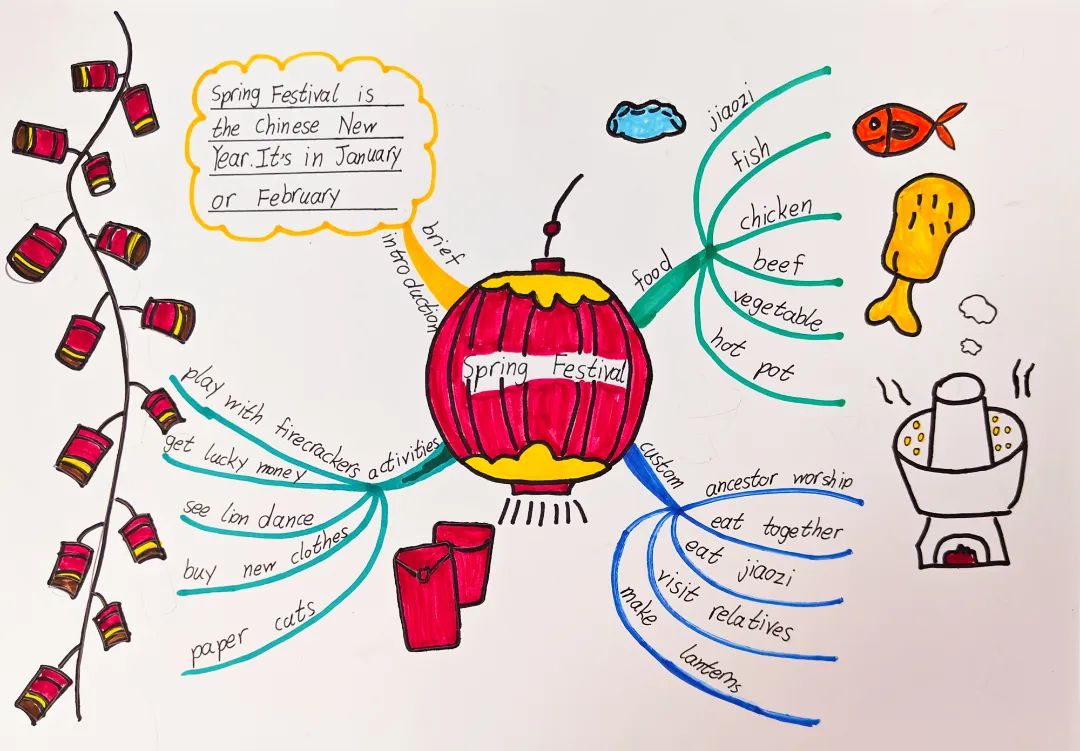 Spring Festival is
the Chinese New
Year. It's in January
or February
brief
introduction
Spring Festival
food
jiaozi
fish
chicken
beef
vegetable
hot pot
activities
play with firecrackers
get lucky money
see lion dance
buy new clothes
paper cuts
custom
ancestor worship
eat together
eat jiaozi
visit relatives
make lanterns